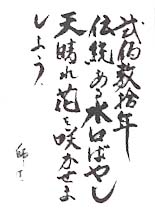 弐佰数拾年
伝統ある水口ばやし
天晴れ花を咲かせま
しょう。